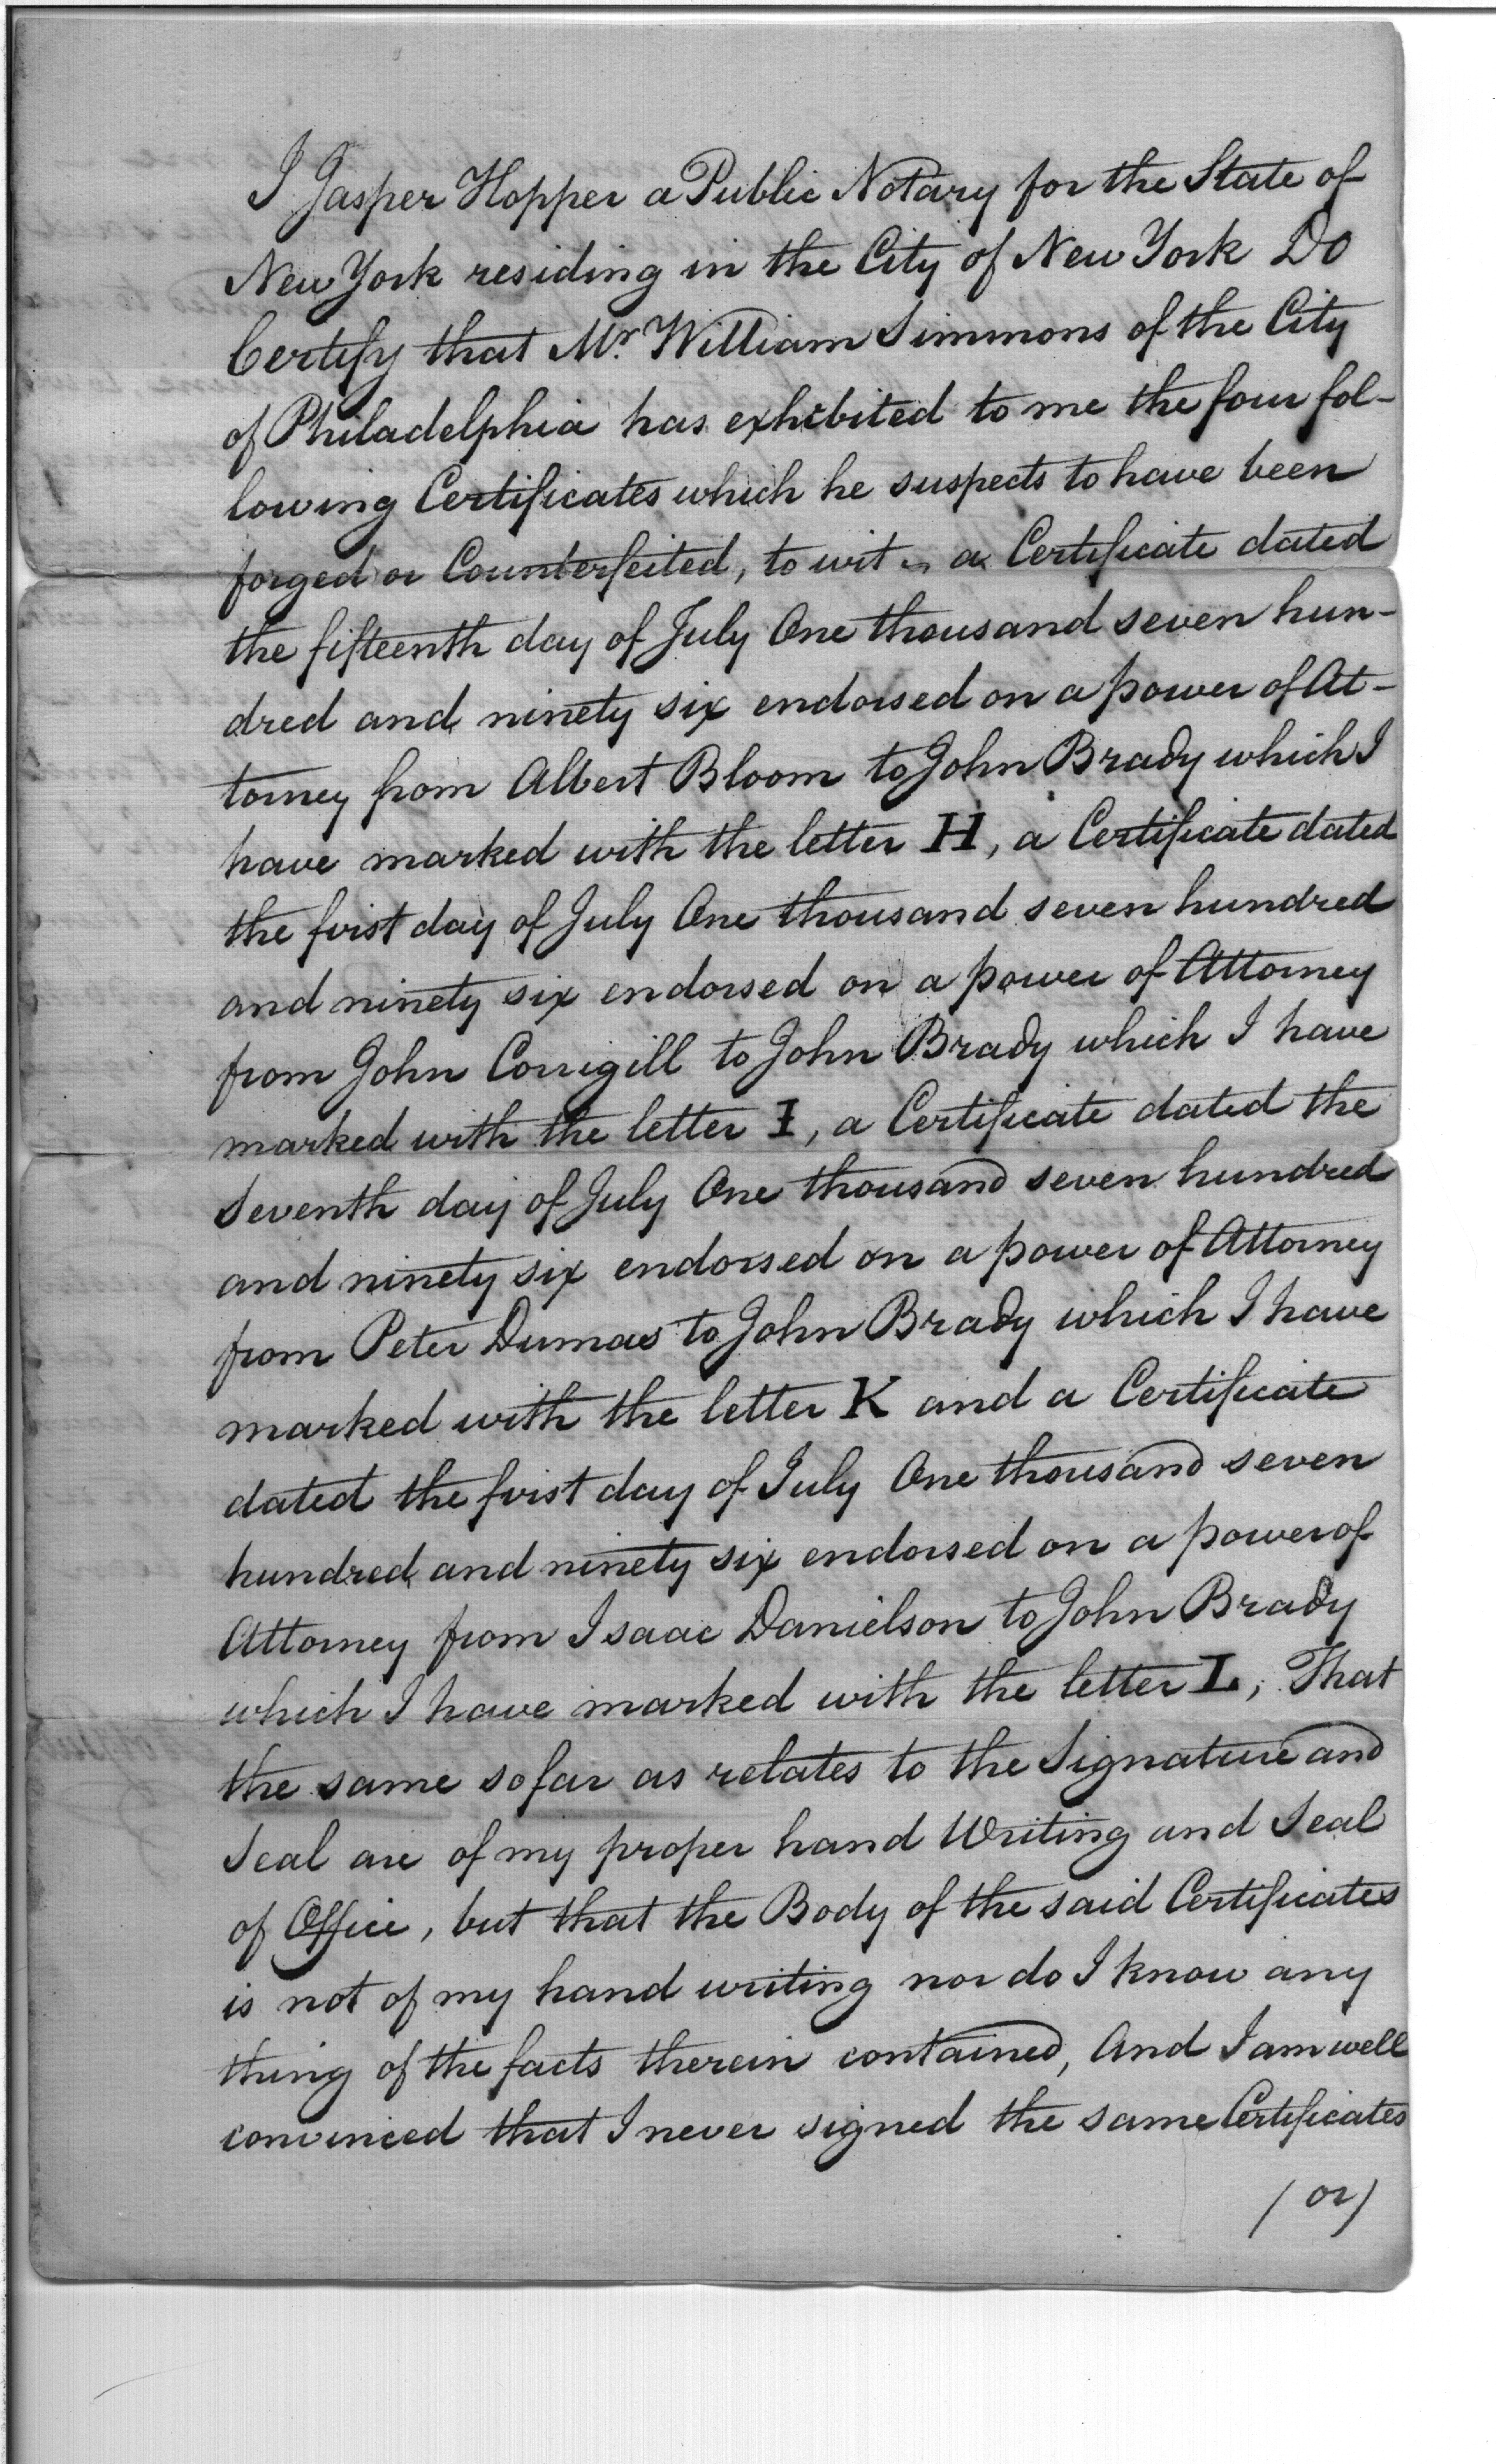 I Jasper Hopper a Public Notary for the State of
New York residing in the City of New York Do
Certify that Mr. William Simmons of the City
of Philadelphia has exhibited to me the four fol-
lowing Certificates which he suspects to have been
forged or Counterfeited, to wit a Certificate dated
the fifteenth day of July One thousand seven hun-
dred and ninety six endorsed on a power of At-
torney from Albert Bloom to John Brady which I
have marked with the letter H, a Certificate dated
the first day of July One thousand seven hundred
and ninety six endorsed on a power of Attorney
from John Corrigill to John Brady which I have
marked with the letter I, a Certificate dated the
Seventh day of July One thousand seven hundred
and ninety six endorsed on a power of Attorney
from Peter Dumas to John Brady which I have
marked with the letter K and a Certificate
dated the first day of July One thousand seven
hundred and ninety six endorsed on a power of
Attorney from Isaac Danielson to John Brady
which I have marked with the letter L, That
the same so far as relates to the Signature and
Seal are of my proper hand Writing and Seal
of Office, but that the Body of the said Certificates
is not of my hand writing nor do I know any
thing of the facts therein contained, And I am well
convinced that I never signed the same Certificates
/ or /